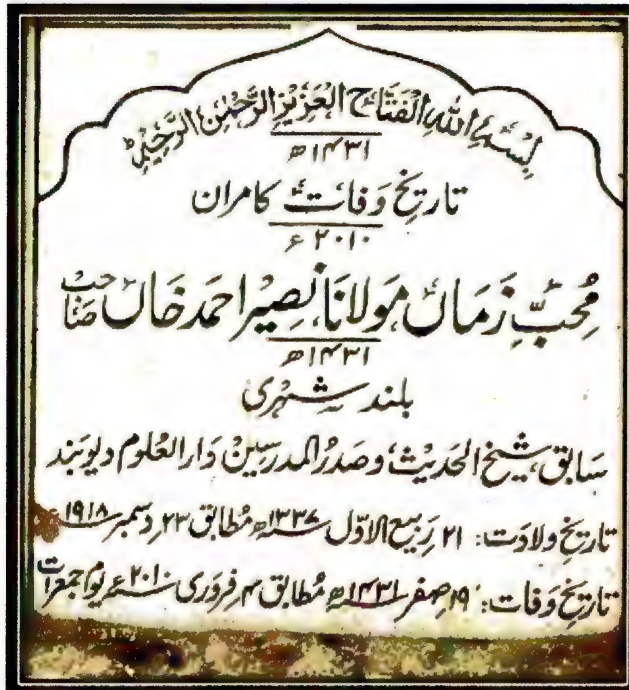 بِسْمِ اللہِ الْفَتَّاحِ الْعَزِیْزِ الرَّحْمٰنِ الرَّحِیْمِ
۱۴۳۱ھ
تاریخِ وفات کامران
۲۰۱۰ء
مُحبِّ زماں مولانا نصیر احمد خاں صاحب
۱۴۳۱ھ
بلند شہری
سابق شیخ الحدیث و صدر المدرسین دار العلوم دیوبند
تاریخ ولادت: ۲۱ ربیع الاوّل ۱۳۳۷ھ مُطابق ۲۳ دسمبر ۱۹۱۸ء
تاریخ وفات: ۱۹ صفر ۱۴۳۱ھ مُطابق ۴ فروری ۲۰۱۰ء یوم جمعرات